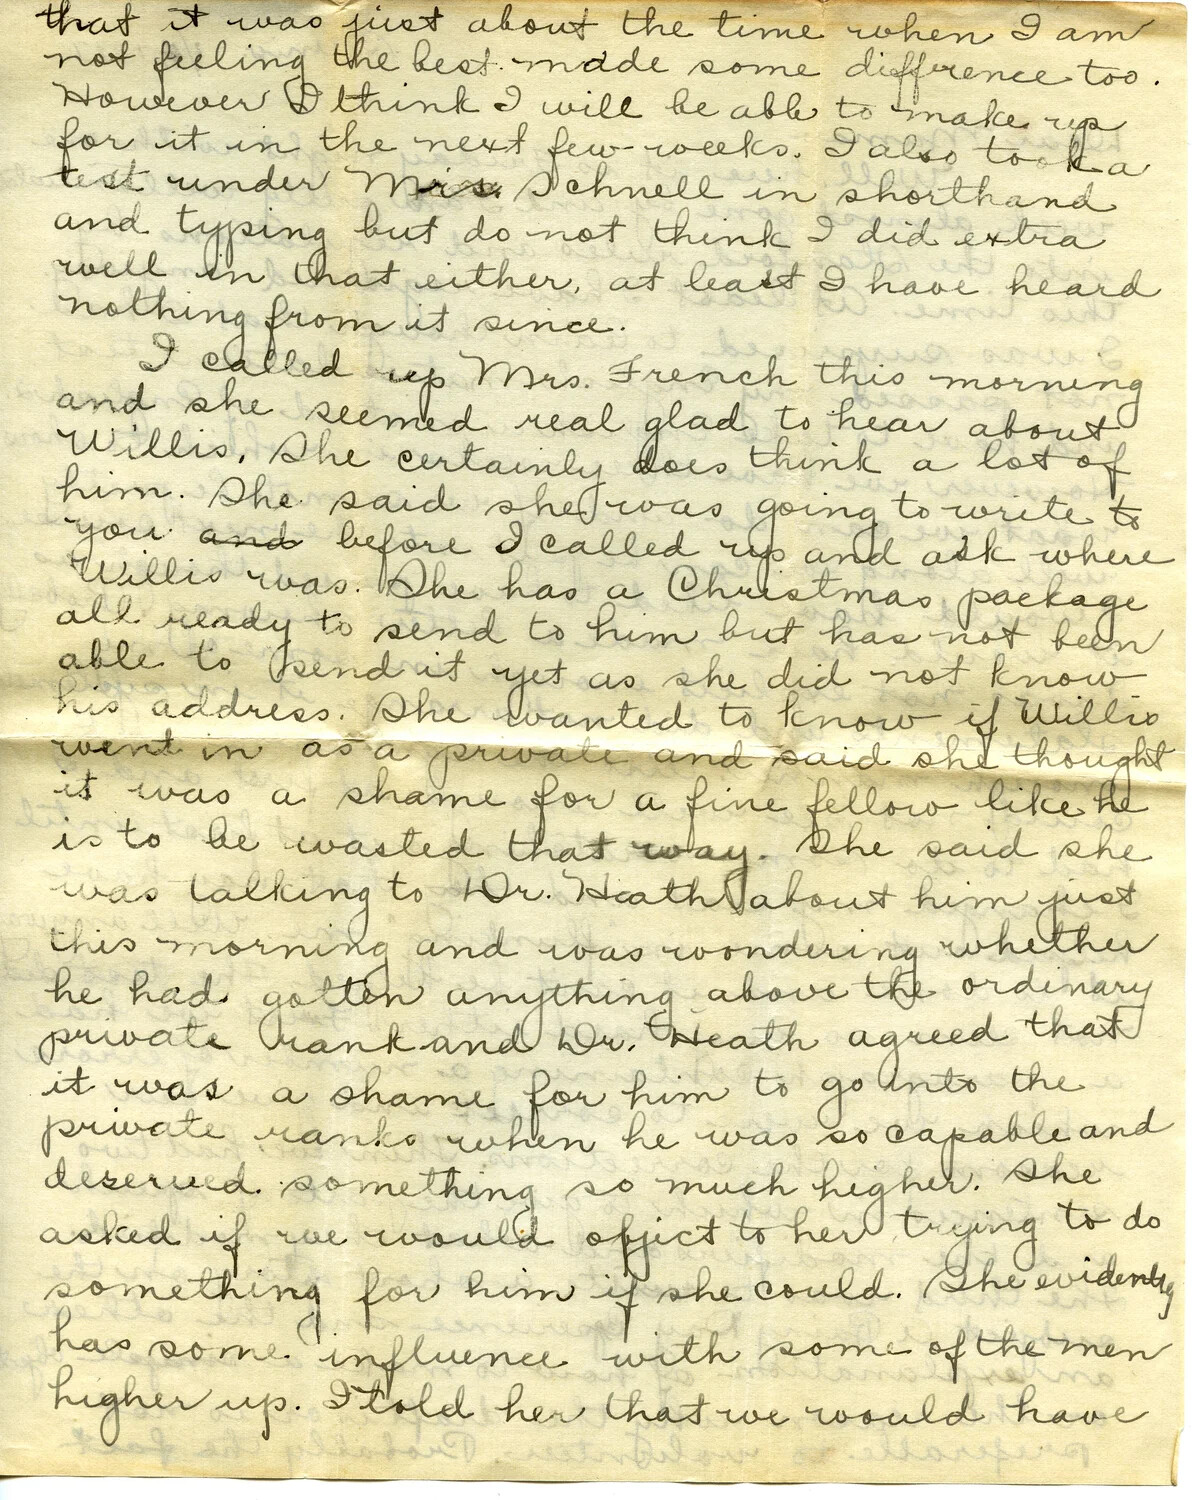 that it was just about the time when I am
not feeling the best made some difference too.
However I think I will be able to make up
for it in the next few weeks. I also took a
test under Mrs. Schnell in shorthand
and typing but do not think I did extra
well in that either, at least I have heard
nothing from it since.
I called up Mrs. French this morning
and she seemed real glad to hear about
Willis. She certainly does think a lot of
him. She said she was going to write to
you and before I called up and ask where
Willis was. She has a Christmas package
all ready to send to him but has not been
able to send it yet as she did not know
his address. She wanted to know if Willis
went in as a private and said she thought
it was a shame for a fine fellow like he
is to be wasted that way. She said she
was talking to Dr. Heath about him just
this morning and was wondering whether
he had gotten anything above the ordinary
private rank and Dr. Heath agreed that
it was a shame for him to go into the
private ranks when he was so capable and
deserved something so much higher. She
asked if we would object to her trying to do
something for him if she could. She evidently
has some influence with some of the men
higher up. I told her that we would have